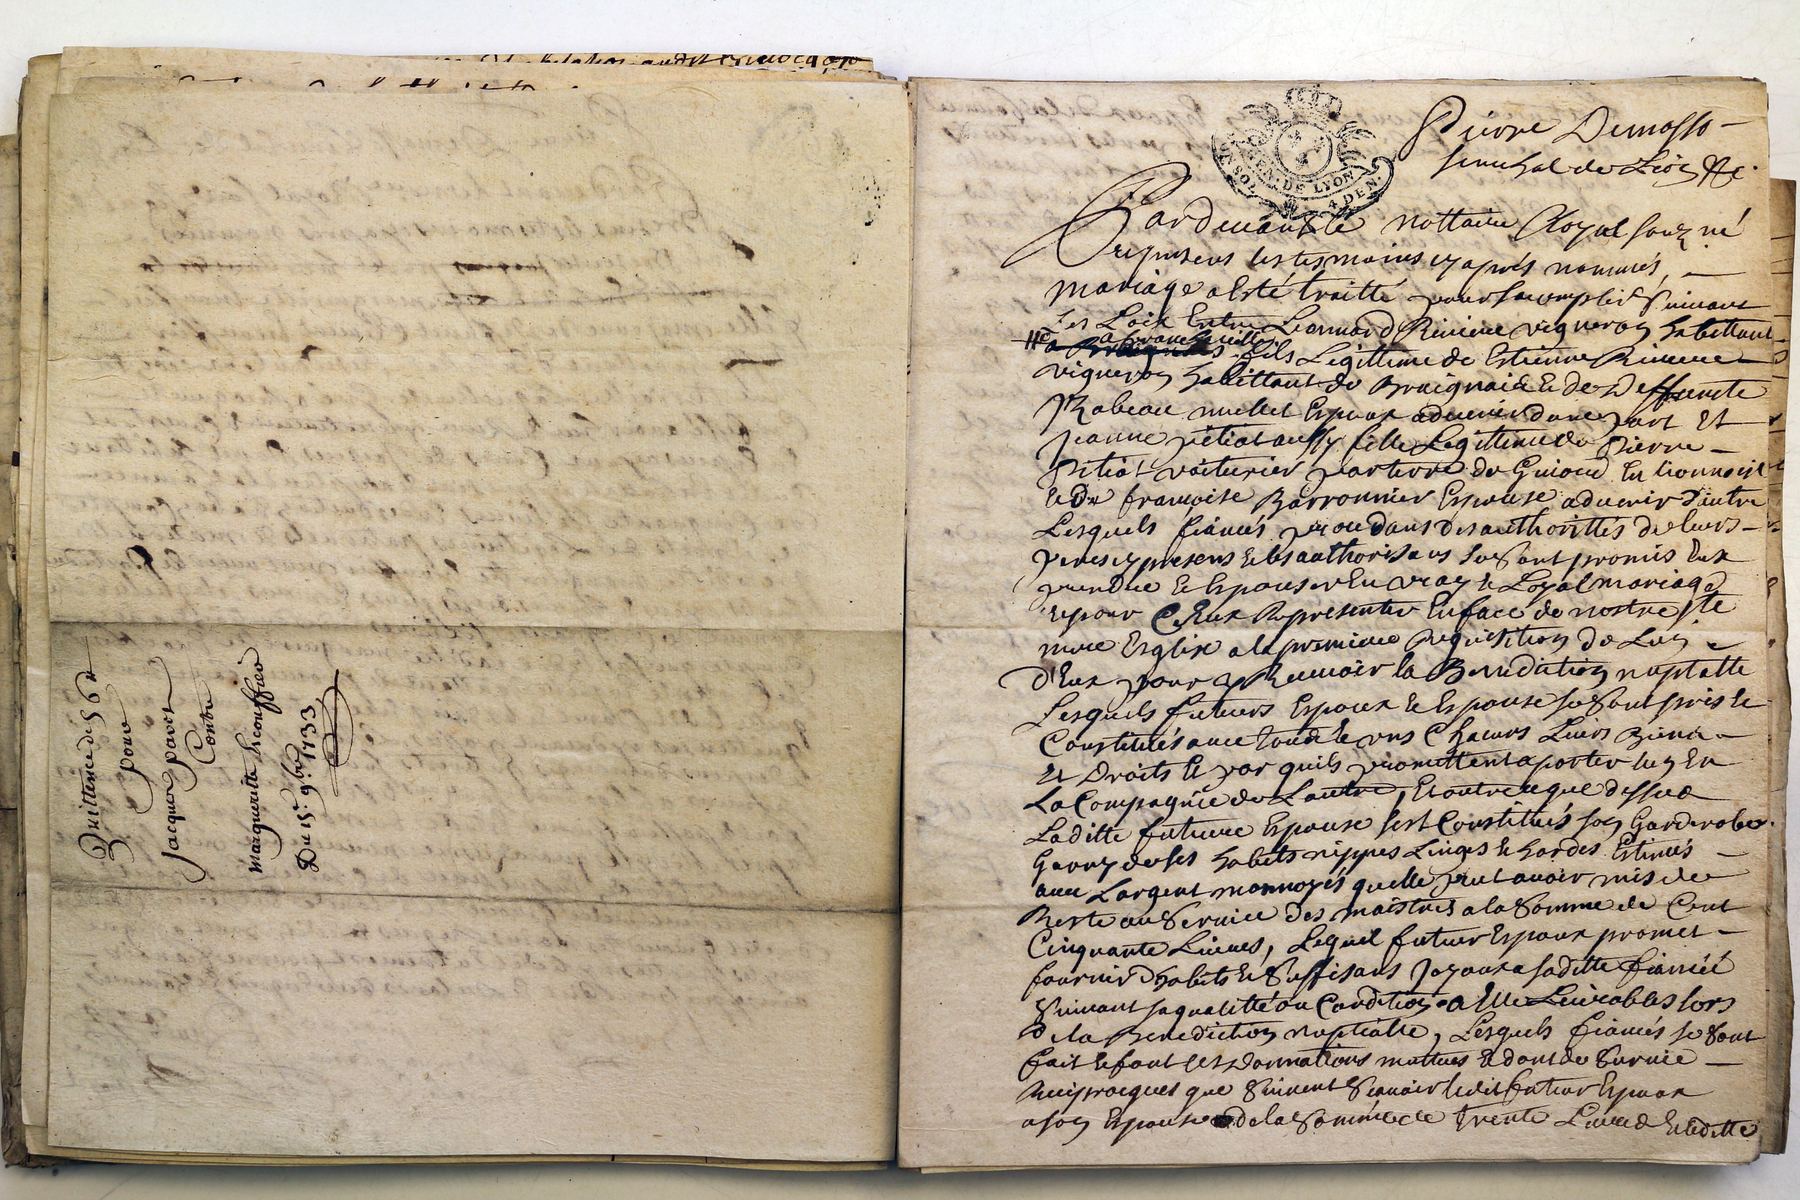 Quittence de 56 lt
pour
Jacques parit
Contre
Marguerite
Du 15e 9bre 1733
GEN. DE LYON
SOL 4 DEN.
Pierre Demasso
senechal de Lion &c.
Pardevant le nottaire Royal souz né
et presens les tesmoins cy apres nommés,
mariage a Esté traitté pour s'acomplir suivant
les Loix Entre Leonnard Riviere vigneron habittant
a fils Legittime de Estienne Riviere
vigneron habittant de Brignais et de Deffuncte
Rabeau mullet Espoux advenir d'une part Et
Jeanne pitiot aussy fille Legittime de Pierre
Pitiot voiturier par terre de En lionnois
et De francoise Barronnier Espouse advenir d'autre
Lesquels fiancés procedans des authorittés de leurs
peres cy presens et les authorisans se sont promis Eux
prendre et Espouser En vray et Loyal mariage
et pour Ce Eux Representer En face de nostre ste
mere Esglise a la premiere Requisition de Lun
d'Eux pour y Recevoir la Benediction nuptialle
Lesquels futurs Espoux et Espouse se sont pris et
Constitués avec tous et uns Chacuns Leurs Biens
et Droits et par quils promettent aporter luy En
La Compagnie de Lautre, Et outre ce que dessus
Laditte future Espouse sest Constitués son Garderobe
Garny de ses habits nippes Linges et hardes Estimés
avec Largent monnoyés quelle peut avoir mis de
Reste au service des maistres a la somme de Cent
Cinquante Livres, Lequel futur Espoux promet
fournir d'habits et suffisans Joyaux a saditte fiancée
suivant sa qualitté ou Condition a Elle Livrables lors
de la Benediction nuptialle, Lesquels fiancés se sont
fait et font les donnations mutues et dont de survie
reciprocques que suivent scavoir ledit futur Espoux
a son Espouse de la somme de trente Livres et laditte